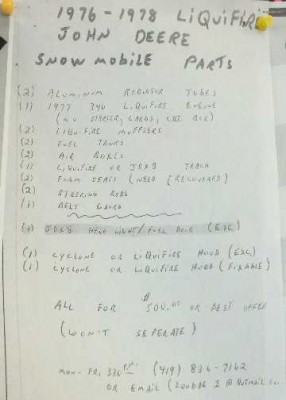 1976-1978 LiQuiFiRE
JOHN DEERE
SNOWMOBILE PARTS
(2) ALUMINUM TUBES
(1) 1977 340 LiQUiFiRE ENGINE
(NO STARTER, CARBS, CDI BOX)
(2) LiQUiFiRE MUFFLERS
(2) FUEL TANKS
(2) AIR BOXES
(1) LiQUiFiRE OR JDX8 TRACK
(2) FOAM SEATS (NEED RECOVERED)
(2) STEERING RODS
(1) BELT GUARD
JDX8 HOOD (EXC)
(1) CYCLONE OR LiQUiFiRE HOOD (EXC)
(1) CYCLONE OR LiQUiFiRE HOOD (FIXABLE)
ALL FOR $500.00 OR BEST OFFER
(WON'T SEPERATE)
MON-FRI (419) 836-7162
OR EMAIL @ HOTMAIL.